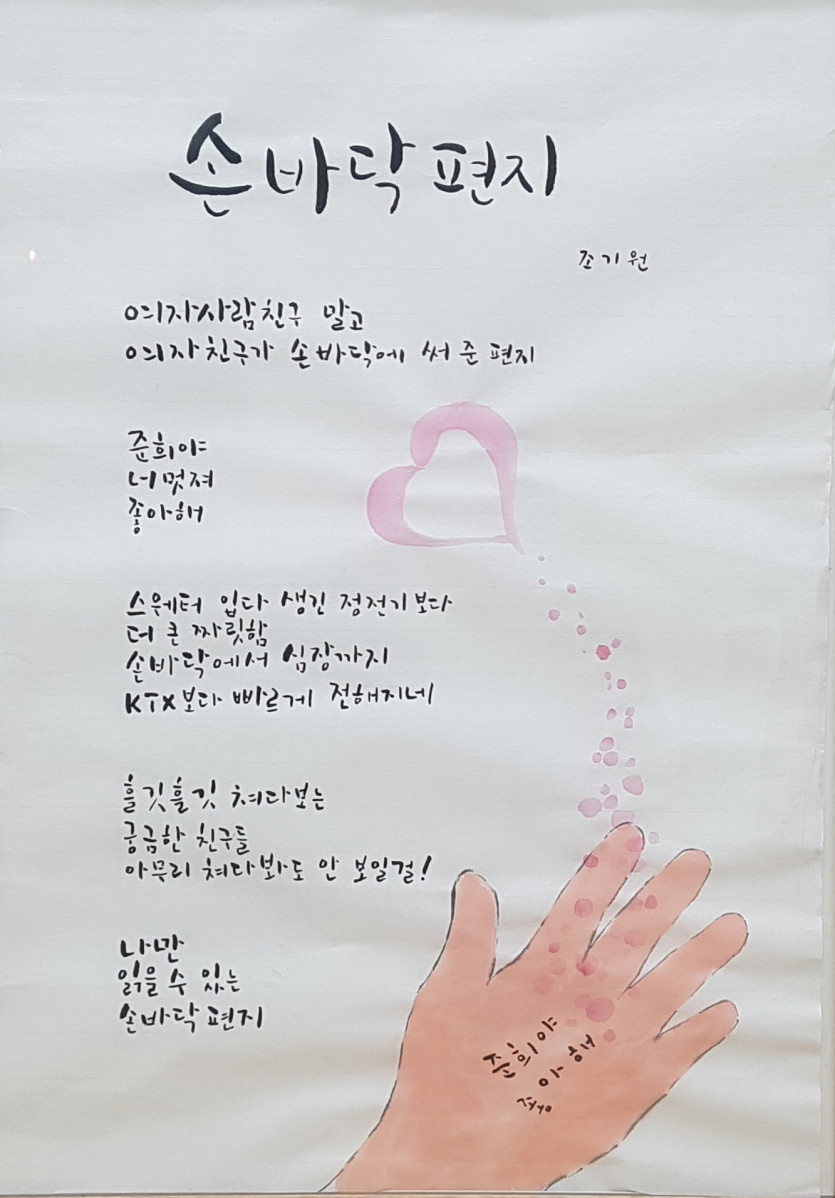 손바닥 편지
조기원
여자사람친구 말고
여자친구가 손바닥에 써 준 편지
준희야
너 멋져
좋아해
스웨터 입다 생긴 정전기보다
더 큰 짜릿함
손바닥에서 심장까지
KTX보다 빠르게 전해지네
흘깃흘깃 쳐다보는
궁금한 친구들
아무리 쳐다봐도 안 보일걸!
나만
읽을 수 있는
손바닥 편지
준희야
아해